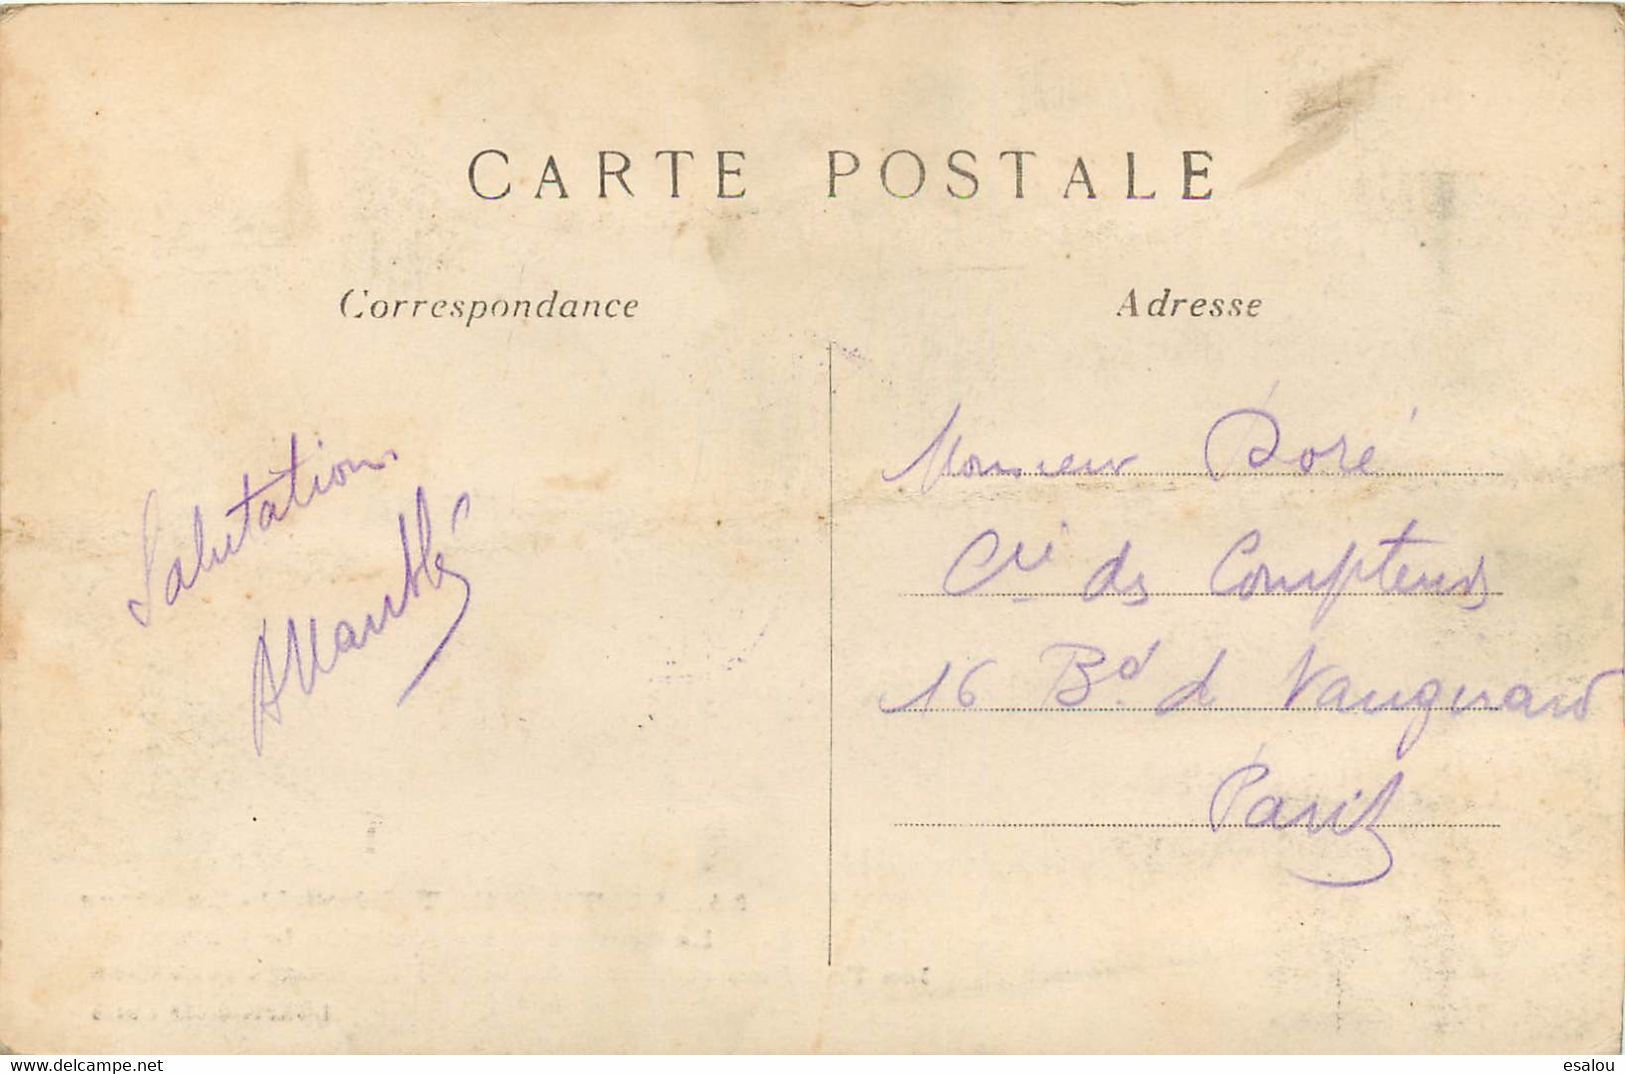 CARTE POSTALE
Correspondance
Adresse
Salutations
Monsieur Doré
Cie des Compteurs
16 Bd de Vaugirard
Paris
www.delcampe.net
esalou